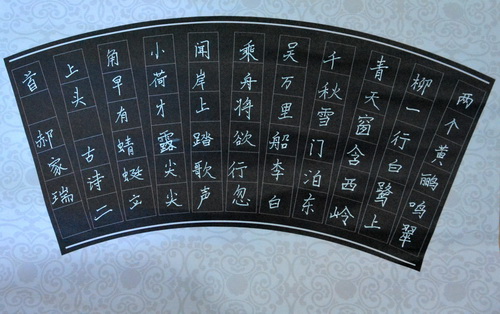 两个黄鹂鸣翠
柳一行白鹭上
青天窗含西岭
千秋雪门泊东
吴万里船李白
乘舟将欲行忽
闻岸上踏歌声
小荷才露尖尖
角早有蜻蜓立
上头 古诗二
首 郝家瑞